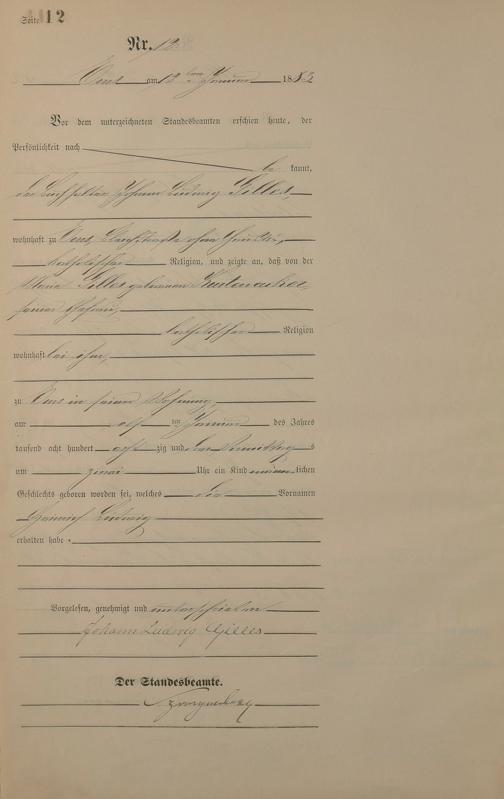 Seite 12
Nr. 12
Ems am 12 ten Januar 1883
Vor dem unterzeichneten Standesbeamten erschien heute, der
Persönlichkeit nach
be kannt,
der Buchhalter Johann Ludwig Gilles,
wohnhaft zu Ems,
katholischer Religion, und zeigte an, daß von der
Maria Gilles geborenen
seiner Ehefrau,
katholischer Religion
wohnhaft bei ihm,
zu Ems in seiner Wohnung,
am elf ten Januar des Jahres
tausend acht hundert acht zig und drei Vormittags
um zwei Uhr ein Kind männ lichen
Geschlechts geboren worden sei, welches die Vornamen
Heinrich Ludwig
erhalten habe.
Vorgelesen, genehmigt und unterschrieben
Johann Ludwig Gilles
Der Standesbeamte.